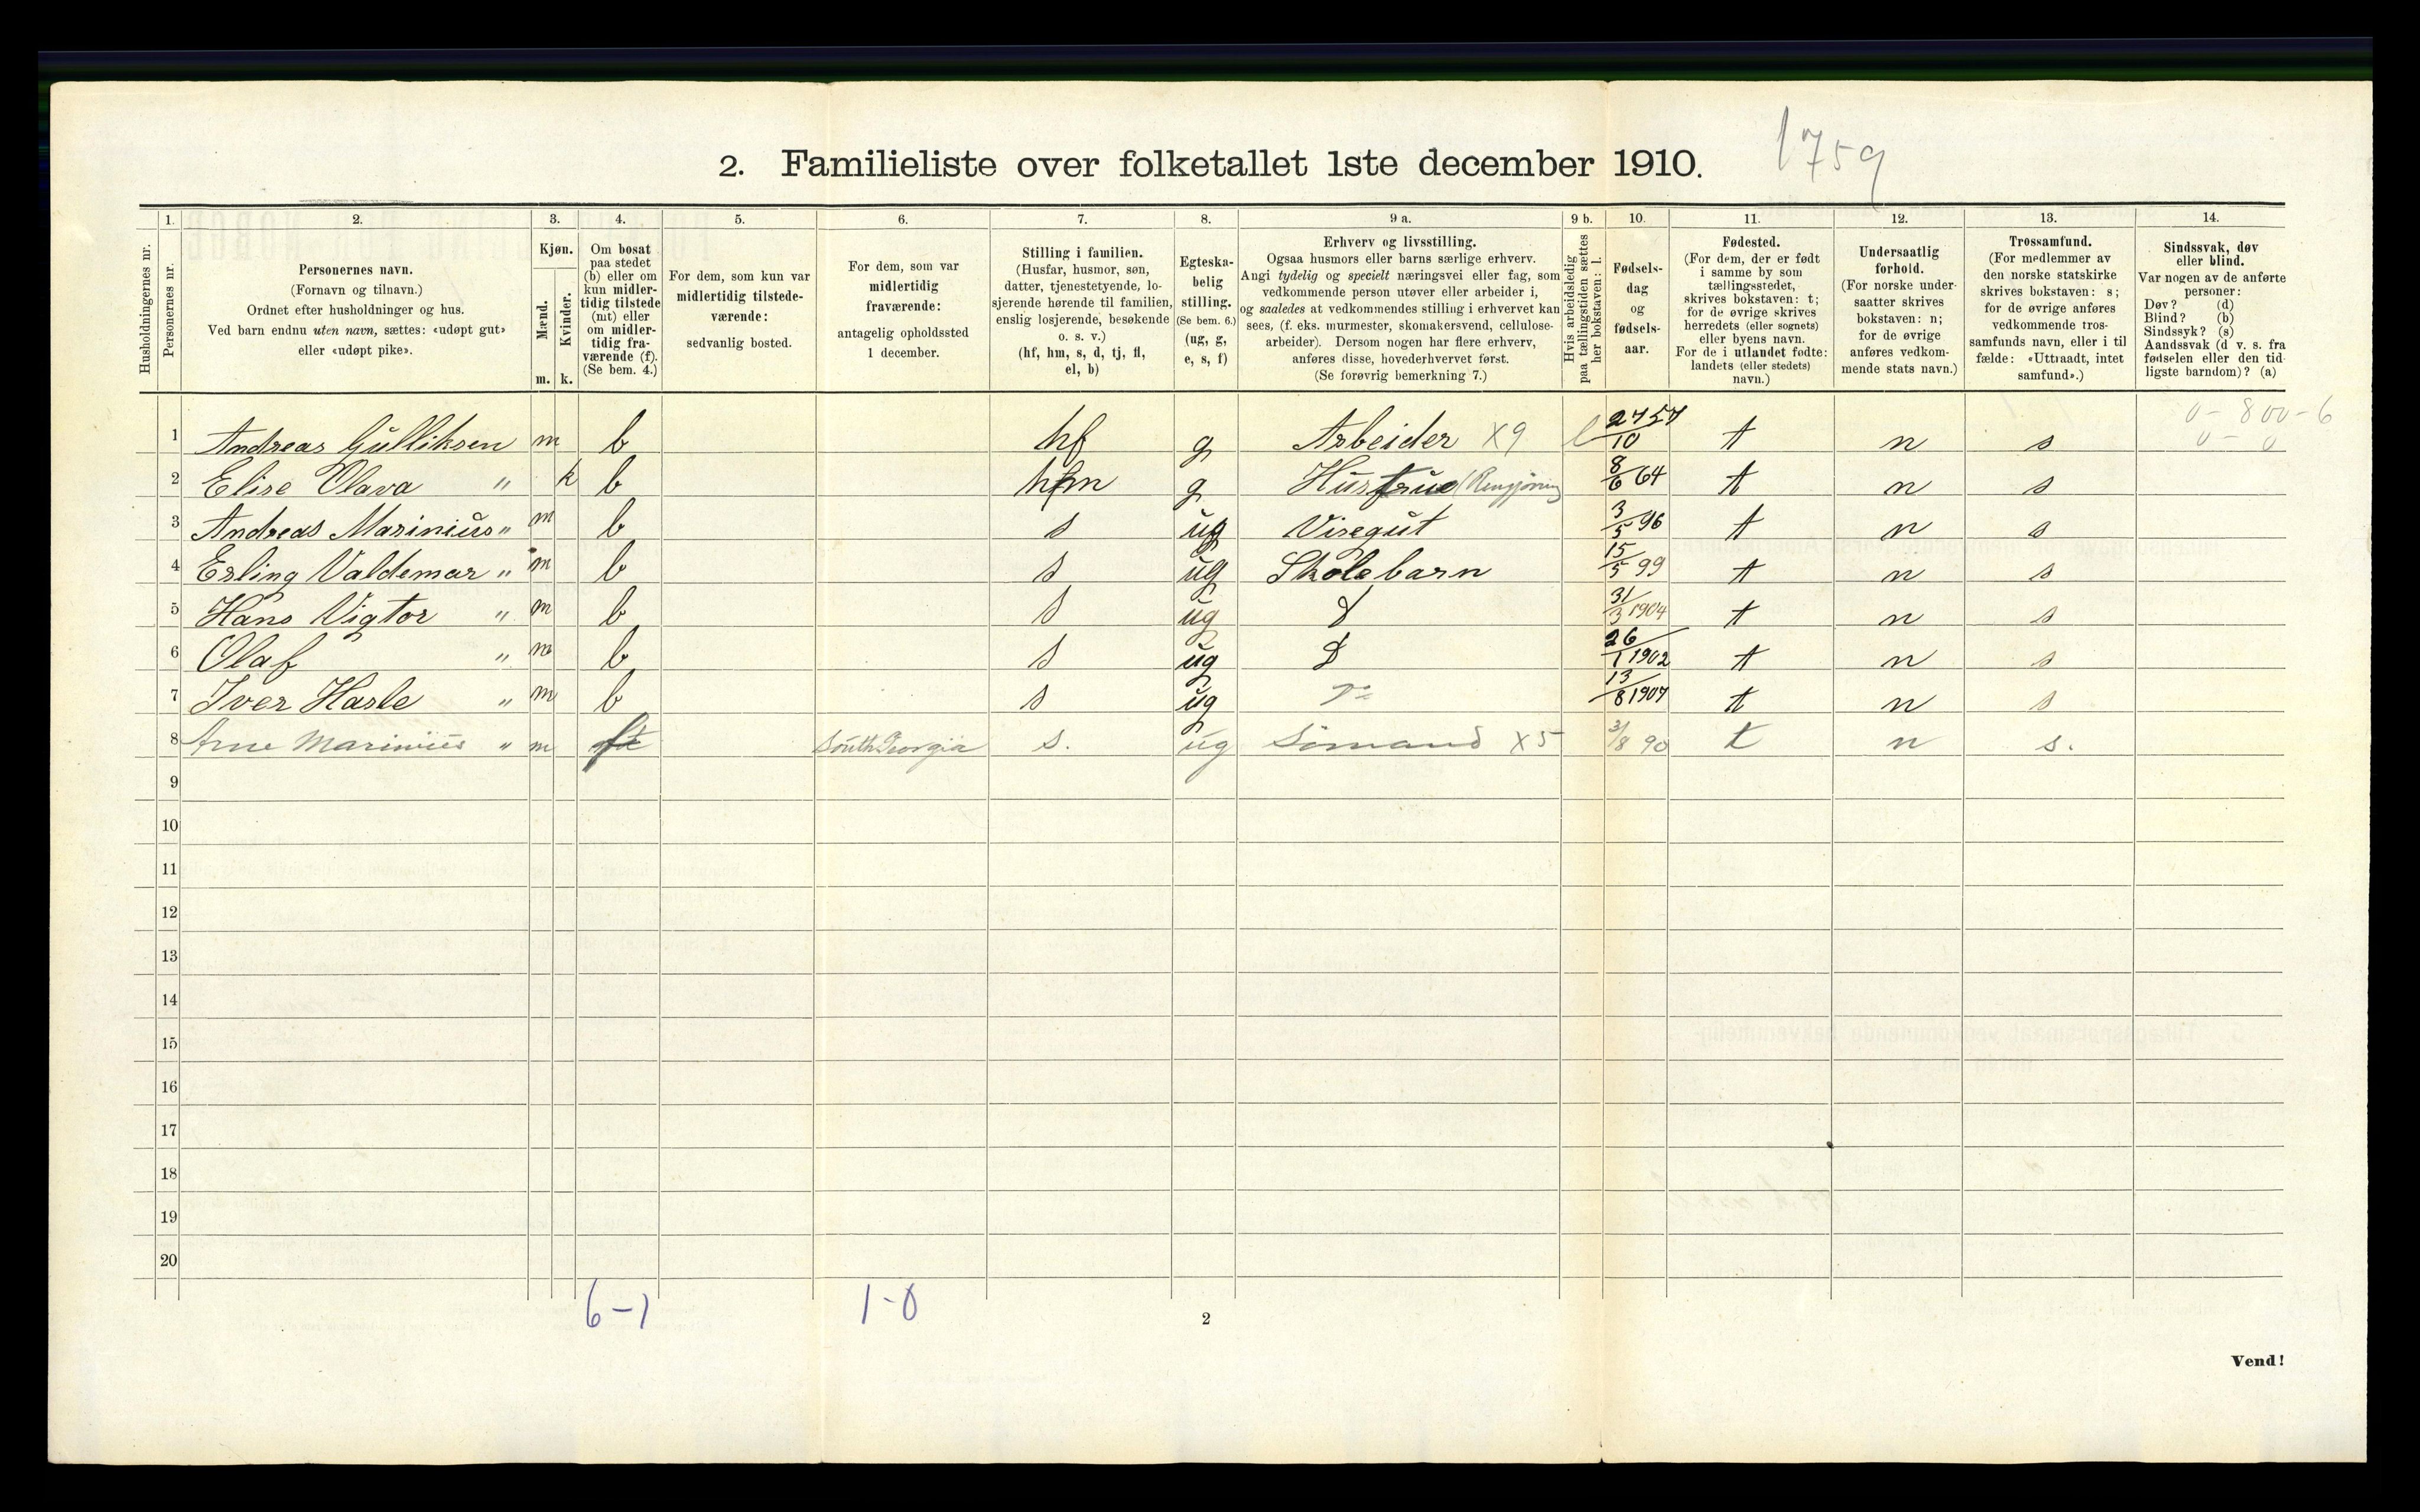 1759
2. Familieliste over folketallet 1ste december 1910.
Husholdningernes nr.
1. Personernes nr.
2. Personernes navn.
(Fornavn og tilnavn.)
Ordnet efter husholdninger og hus.
Ved barn endnu uten navn, sættes: «udøpt gut»
eller «udøpt pike».
3. Kjøn.
Mænd. m.
Kvinder. k.
4. Om bosat
paa stedet
(b) eller om
kun midler-
tidig tilstede
(mt) eller
om midler-
tidig fra-
værende (f).
(Se bem. 4.)
5. For dem, som kun var
midlertidig tilstede-
værende:
sedvanlig bosted.
6. For dem, som var
midlertidig
fraværende:
antagelig opholdssted
1 december.
7. Stilling i familien.
(Husfar, husmor, søn,
datter, tjenestetyende, lo-
sjerende hørende til familien,
enslig losjerende, besøkende
o. s. v.)
(hf, hm, s, d, tj, fl,
el, b)
8. Egteska-
belig
stilling.
(Se bem. 6.)
(ug, g,
e, s, f)
9 a. Erhverv og livsstilling.
Ogsaa husmors eller barns særlige erhverv.
Angi tydelig og specielt næringsvei eller fag, som
vedkommende person utøver eller arbeider i,
og saaledes at vedkommendes stilling i erhvervet kan
sees, (f. eks. murmester, skomakersvend, cellulose-
arbeider). Dersom nogen har flere erhverv,
anføres disse, hovederhvervet først.
(Se forøvrig bemerkning 7.)
9 b. Hvis arbeidsledig
paa tællingstiden sættes
her bokstaven: l.
10. Fødsels-
dag
og
fødsels-
aar.
11. Fødested.
(For dem, der er født
i samme by som
tællingsstedet,
skrives bokstaven: t;
for de øvrige skrives
herredets (eller sognets)
eller byens navn.
For de i utlandet fødte:
landets (eller stedets)
navn.)
12. Undersaatlig
forhold.
(For norske under-
saatter skrives
bokstaven: n;
for de øvrige
anføres vedkom-
mende stats navn.)
13. Trossamfund.
(For medlemmer av
den norske statskirke
skrives bokstaven: s;
for de øvrige anføres
vedkommende tros-
samfunds navn, eller i til-
fælde: «Uttraadt, intet
samfund».)
14. Sindssvak, døv
eller blind.
Var nogen av de anførte
personer:
Døv? (d)
Blind? (b)
Sindssyk? (s)
Aandssvak (d v. s. fra
fødselen eller den tid-
ligste barndom)? (a)
0 - 800 - 6
0 - 0
1 Andreas Gulliksen m b hf g Arbeider X9 l 27/10 57 t n s
2 Elise Olava " k b hm g Hustrue (Rengjøring 8/6 64 t n s
3 Andreas Marinius " m b s ug Visegut 3/5 96 t n s
4 Erling Valdemar " m b s ug Skolebarn 15/5 99 t n s
5 Hans Vigtor " m b s ug 31/3 1904 t n s
6 Olaf " m b s ug 26/1 1902 t n s
7 Iver Hasle " m b s ug 13/8 1907 t n s
8 Arne Marinius " m f South Georgia s. ug Sömand X5 3/8 90 t n s.
9
10
11
12
13
14
15
16
17
18
19
20
6-1 1-0
2
Vend!